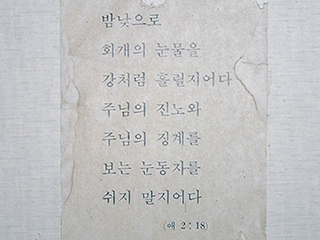 밤낮으로
회개의 눈물을
강처럼 흘릴지어다
주님의 진노와
주님의 징계를
보는 눈동자를
쉬지 말지어다
(애 2:18)